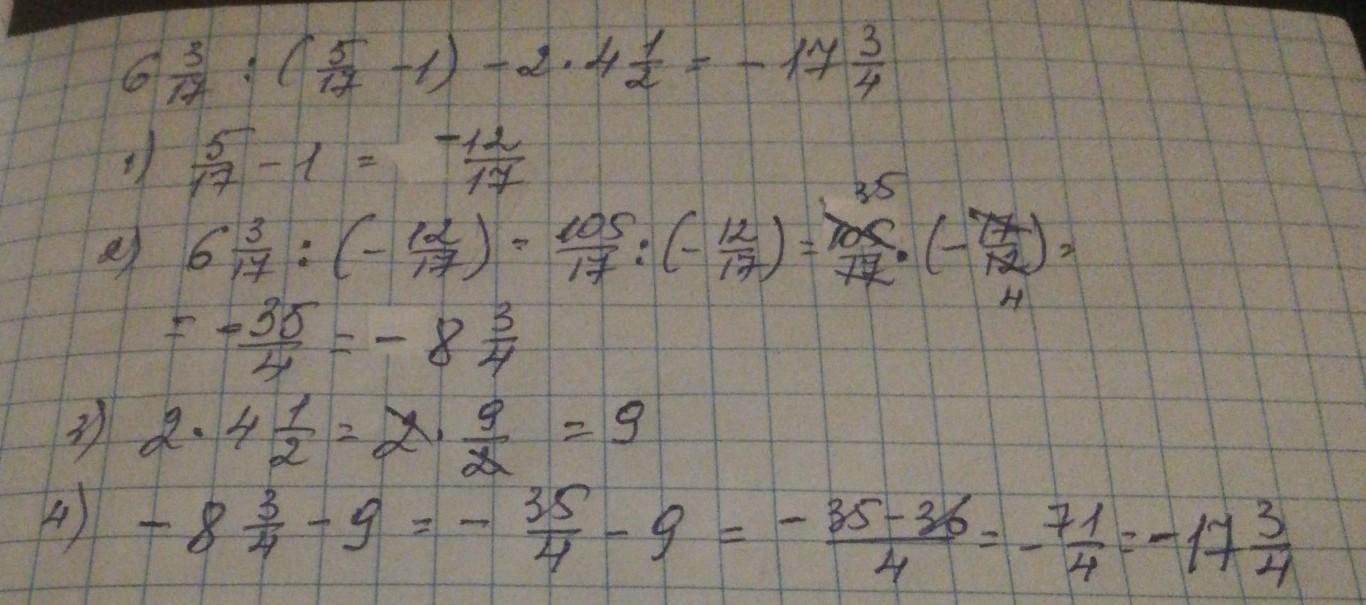 6 3/17 : (5/17 - 1) - 2 · 4 1/2 = - 17 3/4
1) 5/17 - 1 = -12/17
2) 6 3/17 : (- 12/17) = 105/17 : (- 12/17) = 105/17 35 · (- 17/12 4) =
= - 35/4 = - 8 3/4
3) 2 · 4 1/2 = 2 · 9/2 = 9
4) - 8 3/4 - 9 = - 35/4 - 9 = - 35-36/4 = - 71/4 = - 17 3/4